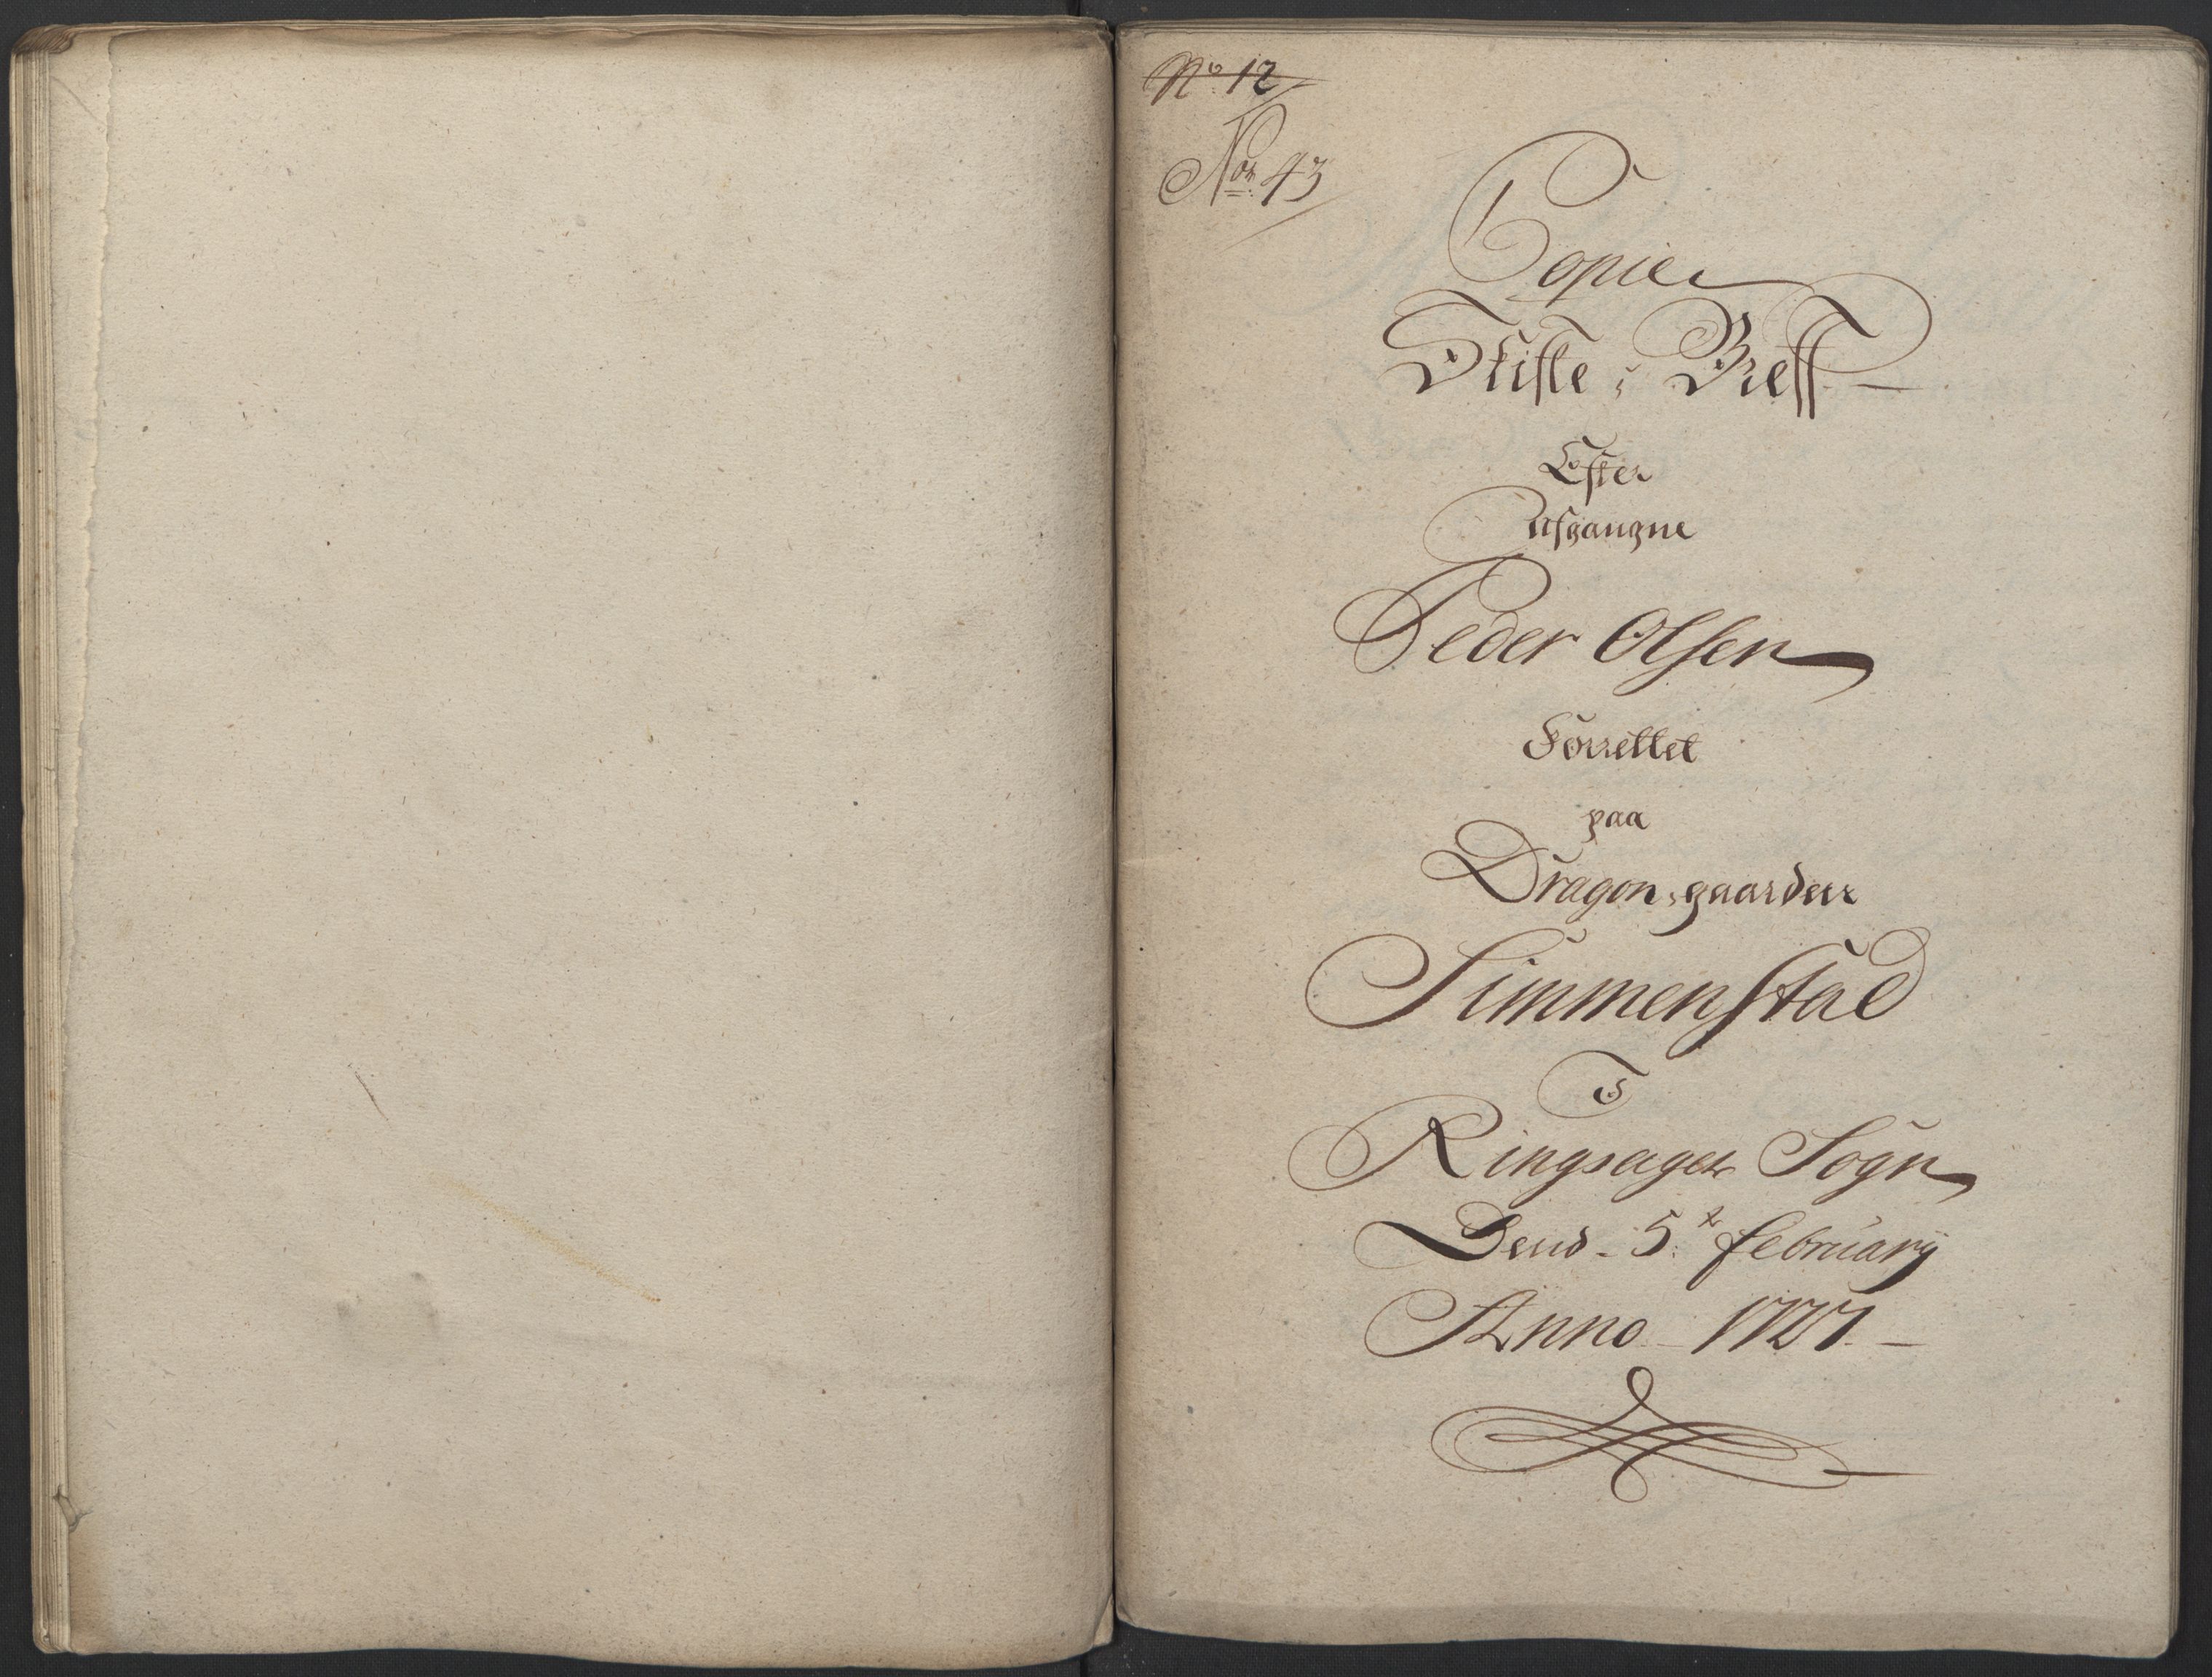 No 12
No: 43
Copie
Skifte, Breff
Efter
Afgangne
Peder Olsen
Forrettet
paa
Dragon, gaarden
Simmenstad
I
Ringsager Sogn
Dend 5t February
Anno 1727